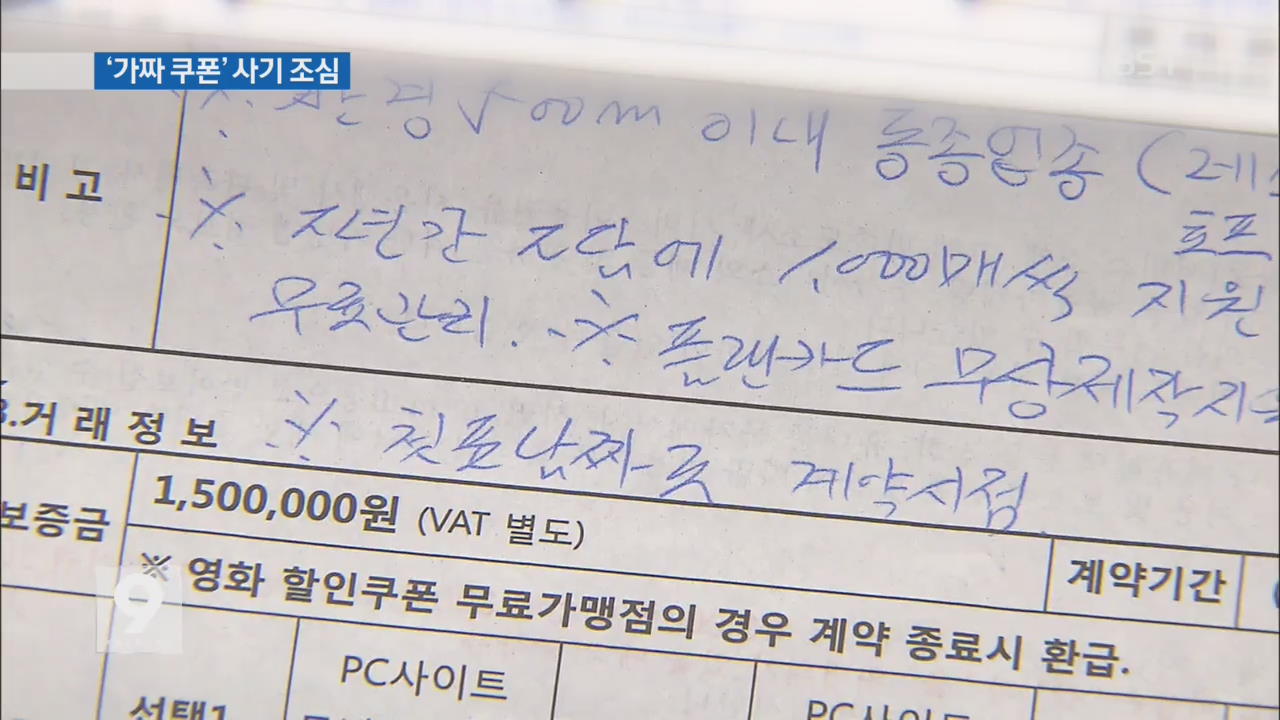 ‘가짜 쿠폰’ 사기 조심
※ 반경 500m 이내 동종업종 (레
호프
비 고
※ 2년간 2달에 1,000매씩 지원
무료관리. ※ 플랜카드 무상제작지
3.거 래 정 보
※ 첫쿠폰날짜로 계약시점
보증금
1,500,000원 (VAT 별도)
계약기간
※ 영화 할인쿠폰 무료가맹점의 경우 계약 종료시 환급.
9
선택1
PC사이트
PC사이트